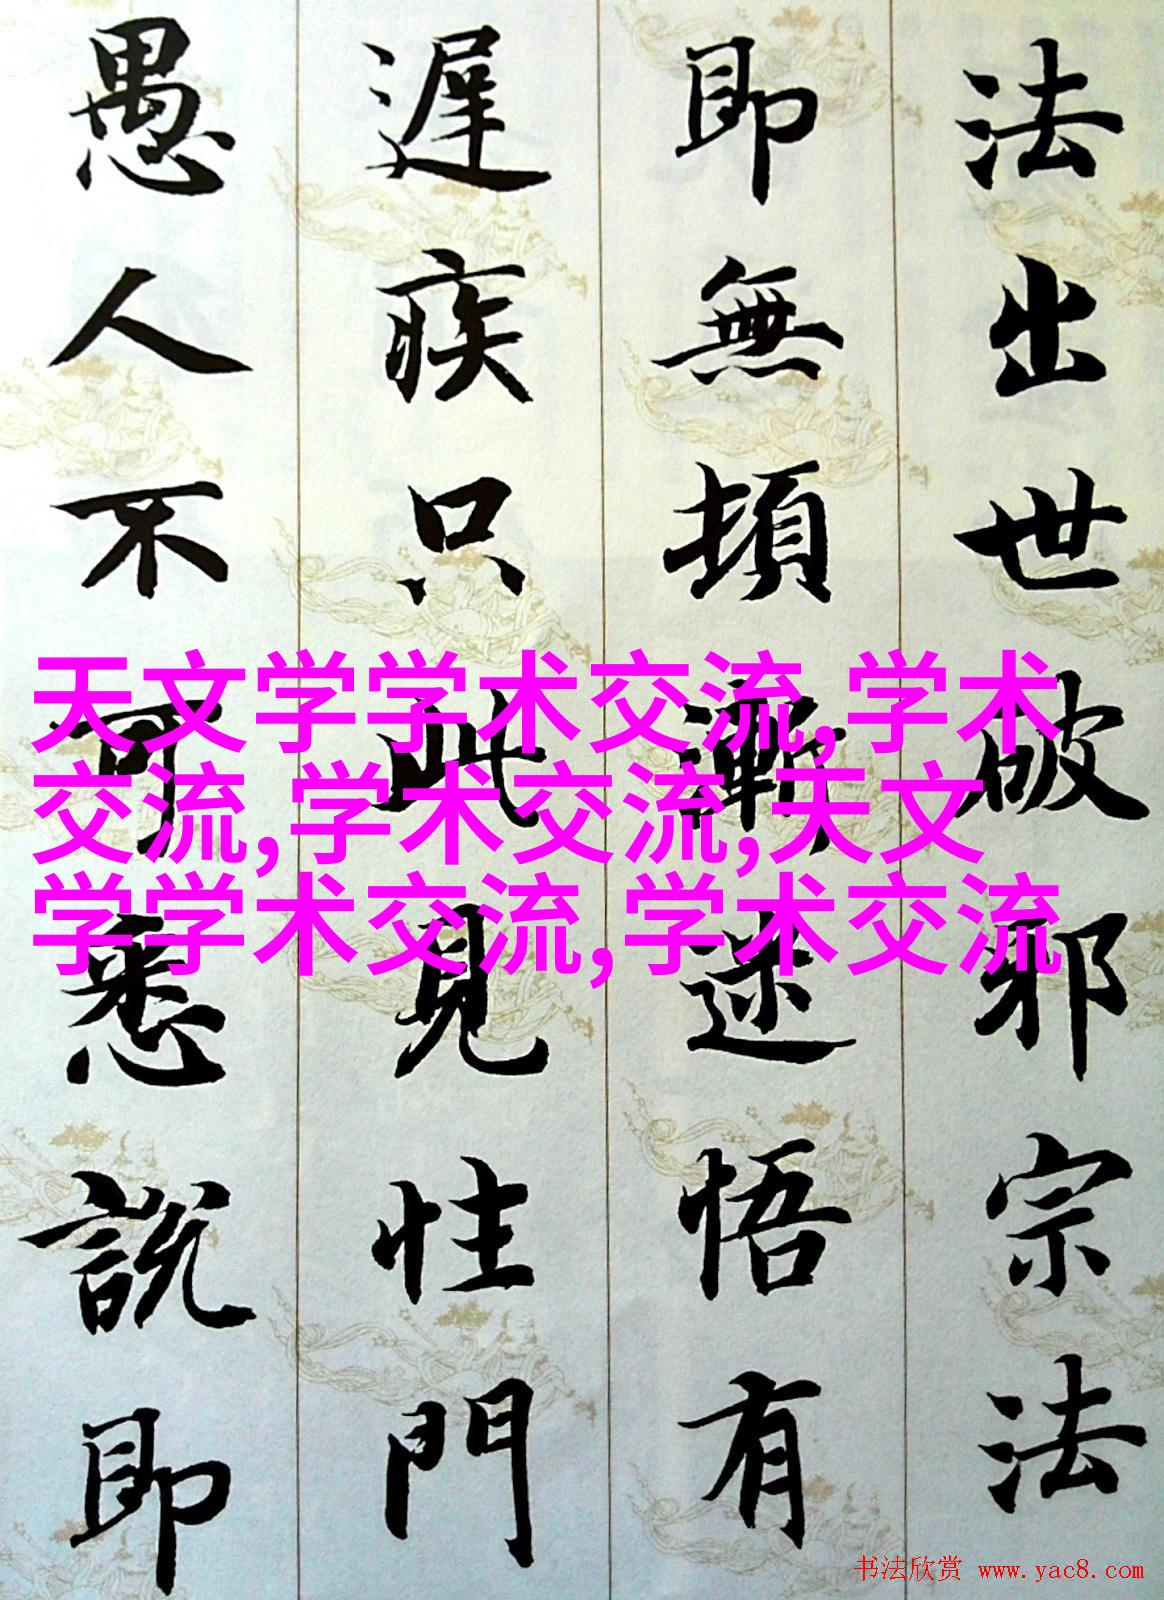 法出世破邪宗法
即無頓漸迷悟有
遲疾只此見性門
愚人不可悉說即
天文学学术交流,学术
交流,学术交流,天文
学学术交流,学术交流
书法欣赏 www.yac8.com